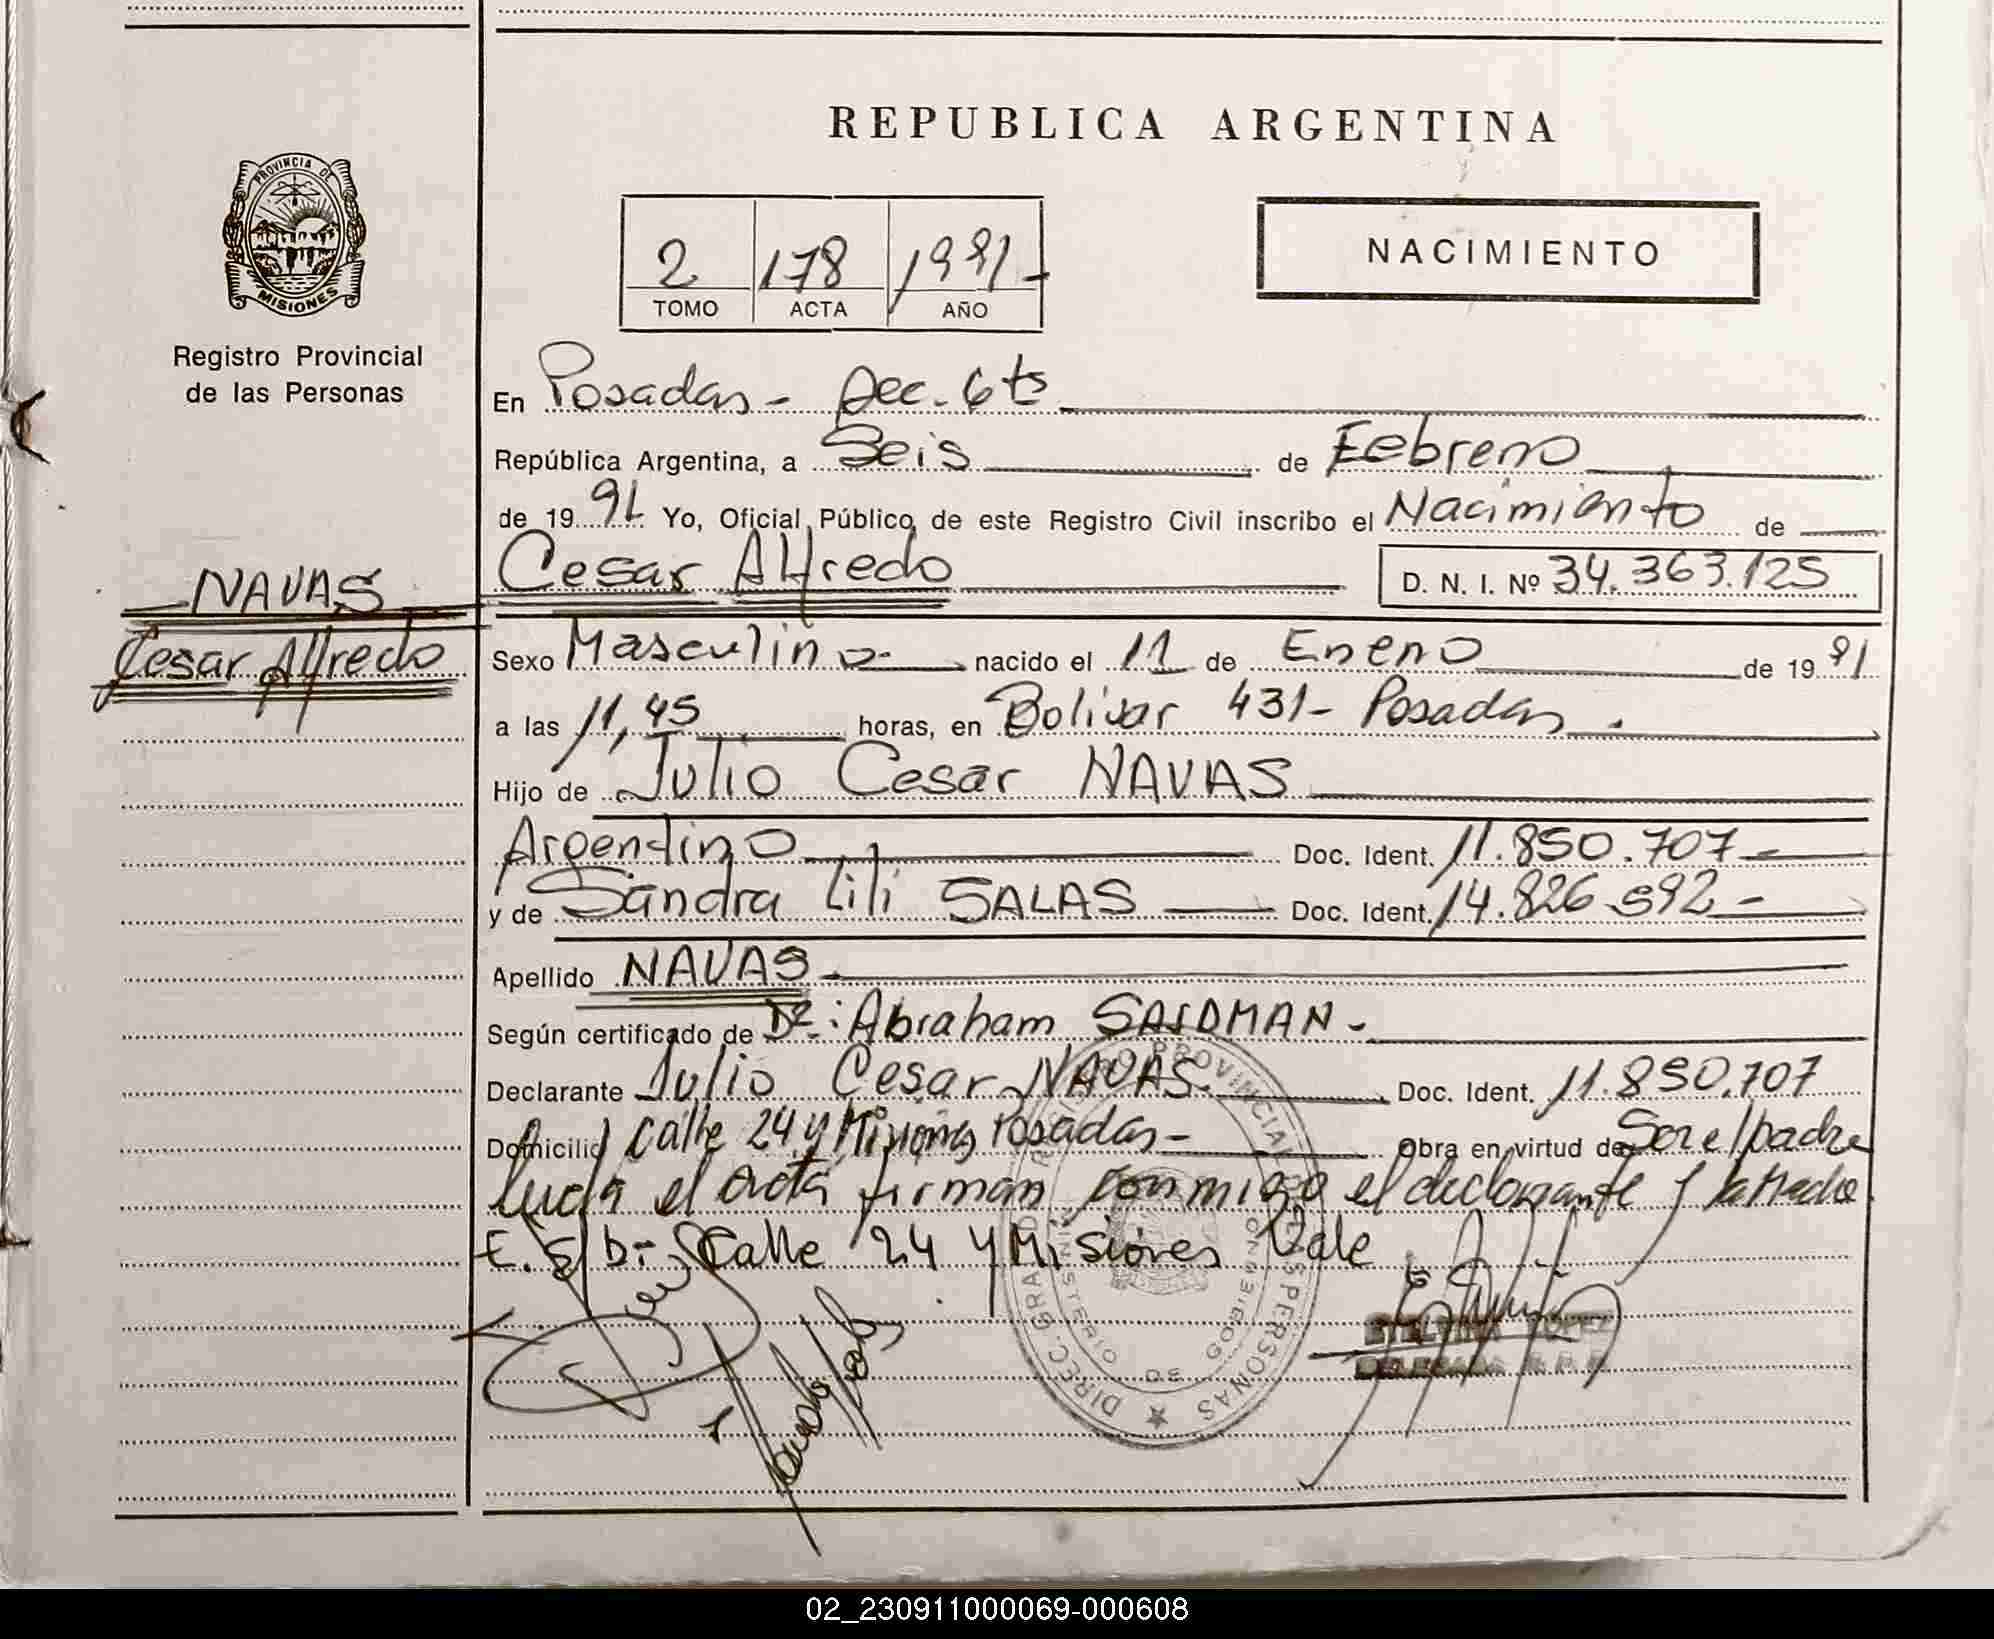 REPUBLICA ARGENTINA
PROVINCIA DE
MISIONES
Registro Provincial
de las Personas
2 178 1991-
TOMO ACTA AÑO
NACIMIENTO
En Posadas - Sec. 6ta
República Argentina, a Seis de Febrero
de 1991 Yo, Oficial Público de este Registro Civil inscribo el Nacimiento de
NAVAS
Cesar Alfredo
Cesar Alfredo D. N. I. Nº 34.363.125
Sexo Masculino- nacido el 11 de Enero de 1991
a las 11,45 horas, en Bolivar 431- Posadas.
Hijo de Julio Cesar NAVAS
Argentino Doc. Ident. 11.850.707-
y de Sandra Lili SALAS Doc. Ident. 14.826.592-
Apellido NAVAS-
Según certificado de Dr.: Abraham
Declarante Julio Cesar NAVAS. Doc. Ident. 11.850.707
Domicilio Calle 24 y Misiones Posadas- Obra en virtud de Ser el padre
Leida el acta firman conmigo el declarante y la Madre.
E. S/b:- Calle 24 y Misiones Vale
REGISTRO PROVINCIAL DE LAS PERSONAS
DIREC. GRAL.
MINISTERIO DE GOBIERNO
LOPEZ
DELEGADA R.P.P.
02_230911000069-000608